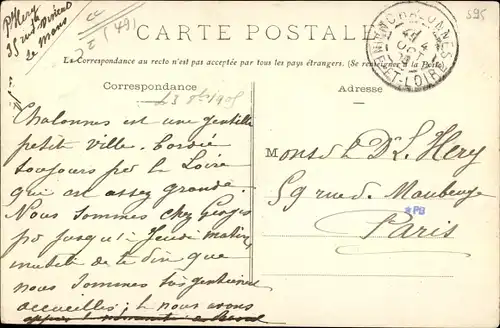 595
Pr Hery
35 rue
Le Mans
22 (49)
CARTE POSTALE
La Correspondance au recto n'est pas acceptée par tous les pays étrangers. (Se renseigner à la Poste)
CHALONNES
OCT
ET-LOIRE
Correspondance
Adresse
Chalonnes est une gentille
petite ville. Bordée
toujours par la Loire
qui est assez grande.
Nous sommes chez Georges
jusqu'à Jeudi matin,
inutile de te dire que
nous sommes très gentiment
accueillis; nous avons
Mons le Dr L. Hery
59 rue de Maubeuge
Paris
*PB